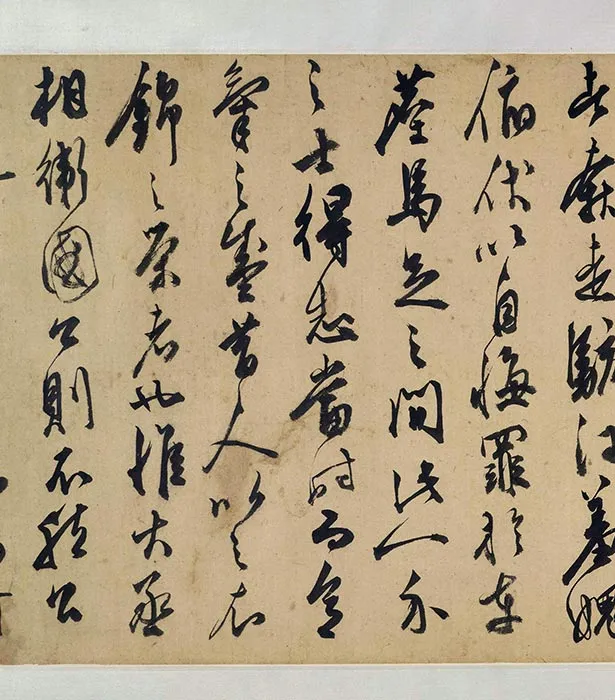 者奔走駭汗羞愧
俯伏以自悔罪於車
塵馬足之間此一介
之士得志當時而意
氣之盛昔人比之衣
錦之榮者也惟大丞
相衛國公則不然公